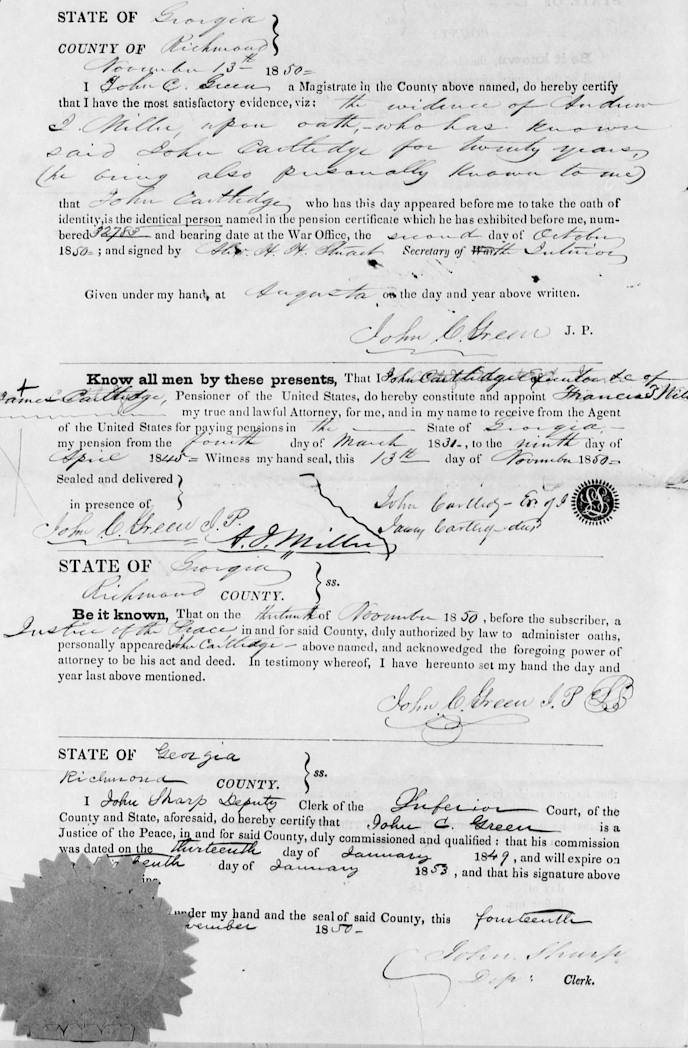 STATE OF Georgia
COUNTY OF Richmond
November 13th 1850
I John C. Green a Magistrate in the County above named, do hereby certify
that I have the most satisfactory evidence, viz: the evidence of Andrew
J. Miller, upon oath, who has known
said John Cartledge for twenty years,
(he being also personally known to me)
that John Cartledge who has this day appeared before me to take the oath of
identity, is the identical person named in the pension certificate which he has exhibited before me, num-
bered 32785 and bearing date at the War Office, the second day of October
1850; and signed by Alex. H. H. Stuart Secretary of War the Interior
Given under my hand, at Augusta on the day and year above written.
John C. Green J. P.
Know all men by these presents, That I John Cartledge Executor &c of
James Cartledge, Pensioner of the United States, do hereby constitute and appoint Francis T.
my true and lawful Attorney, for me, and in my name to receive from the Agent
of the United States for paying pensions in the State of Georgia,
my pension from the fourth day of March 1831, to the ninth day of
April 1845 Witness my hand seal, this 13th day of November 1850
Sealed and delivered
in presence of
John Cartledge Exr of J
John C. Green J. P.
A. J. Miller
STATE OF Georgia
Richmond COUNTY. ss.
Be it known, That on the thirteenth of November 1850, before the subscriber, a
Justice of the Peace in and for said County, duly authorized by law to administer oaths,
personally appeared John Cartledge above named, and acknowedged the foregoing power of
attorney to be his act and deed. In testimony whereof, I have hereunto set my hand the day and
year last above mentioned.
John C. Green J. P. LS
STATE OF Georgia
Richmond COUNTY. ss.
I John Sharp Deputy Clerk of the Inferior Court, of the
County and State, aforesaid, do hereby certify that John C. Green is a
Justice of the Peace, in and for said County, duly commissioned and qualified: that his commission
was dated on the thirteenth day of January 1849, and will expire on
teenth day of January 1853, and that his signature above
ine.
under my hand and the seal of said County, this fourteenth
vember 1850
John Sharp
Dep: Clerk.